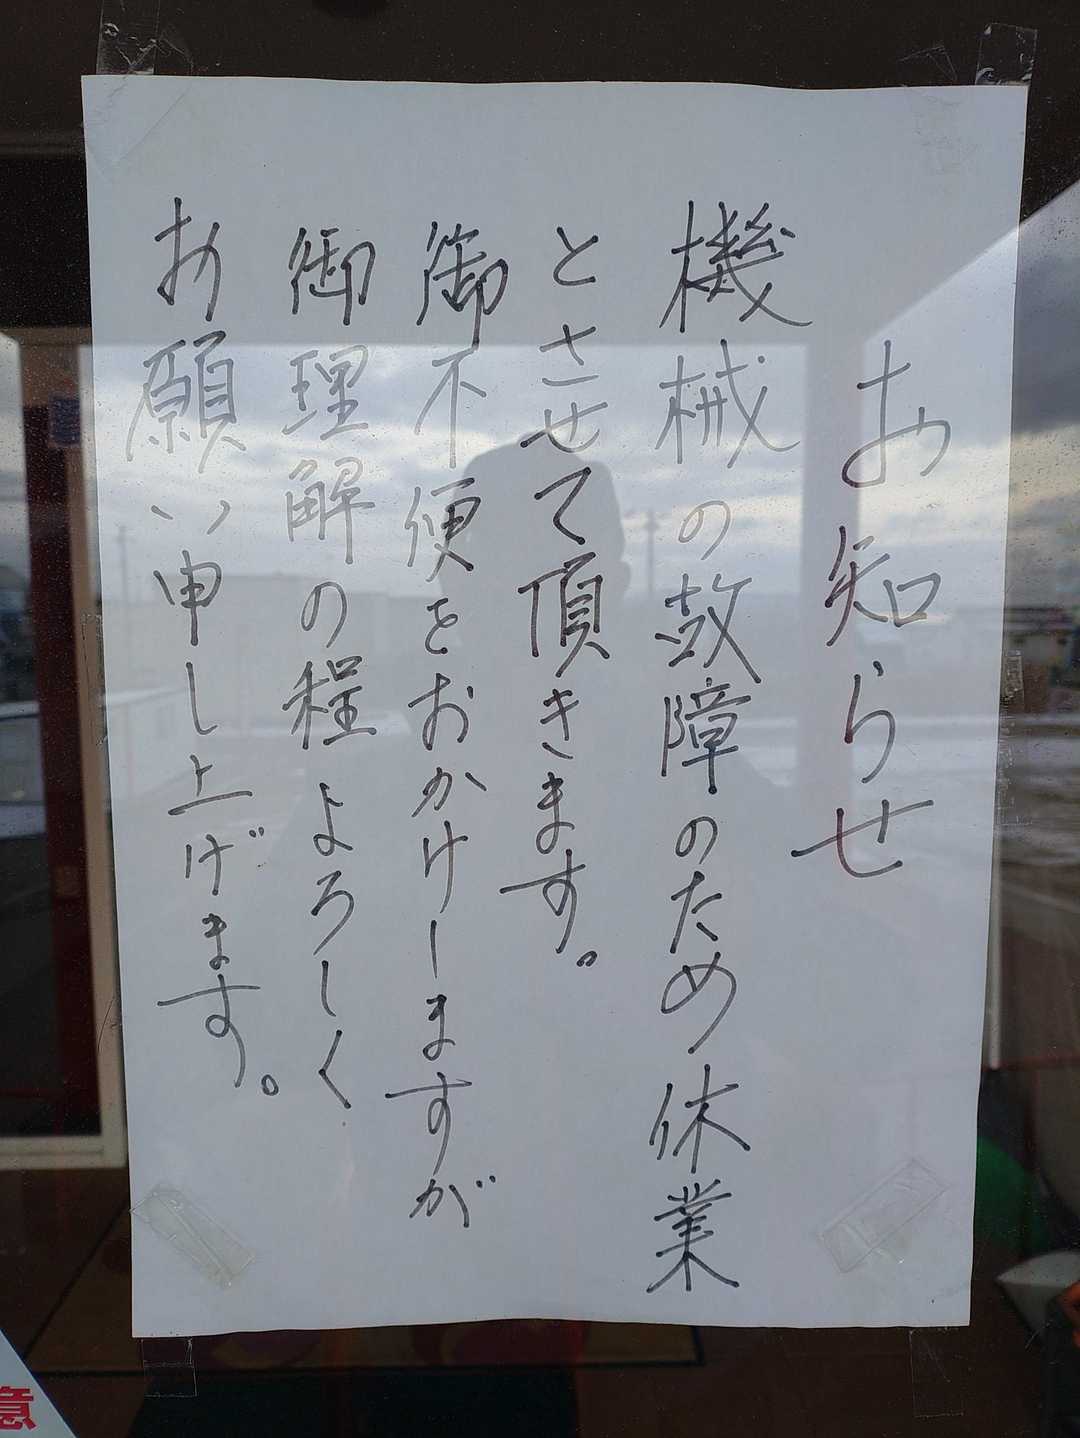 お知らせ
機械の故障のため休業
とさせて頂きます。
御不便をおかけしますが
御理解の程よろしく
お願い申し上げます。
意